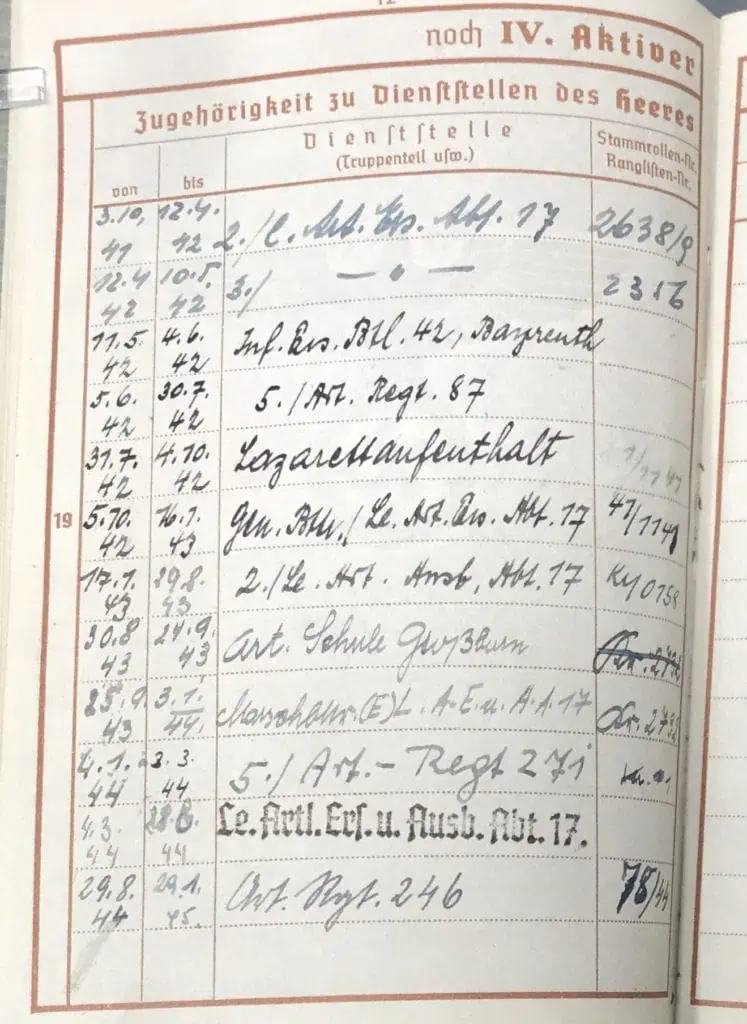 12
noch IV. Aktiver
Zugehörigkeit zu Dienststellen des Heeres
von bis Dienststelle (Truppenteil usw.) Stammrollen-Nr. Ranglisten-Nr.
19
3.10. 41 12.4. 42 2./l. Art. Ers. Abt. 17 2638/9
12.4 42 10.5. 42 3./ — " — 2356
11.5. 42 4.6. 42 Inf. Ers. Btl. 42, Bayreuth
5.6. 42 30.7. 42 5./Art. Regt. 87
31.7. 42 4.10. 42 Lazarettaufenthalt 1/1141
5.10. 42 16.1. 43 Gen. Bttr./Le. Art. Ers. Abt. 17 47/1141
17.1. 43 29.8. 43 2./Le. Art. Ausb. Abt. 17
30.8 43 24.9. 43 Art. Schule Großborn
25.9. 43 3.1. 44. (E) L. A.E.u.A.A.17 2732
4.1. 44 3.3. 44 5./Art.-Regt 271
4.3. 44 28.8. 44 Le. Artl. Ers. u. Ausb. Abt. 17.
29.8. 44 29.1. 45. Art. Rgt. 246 78/44